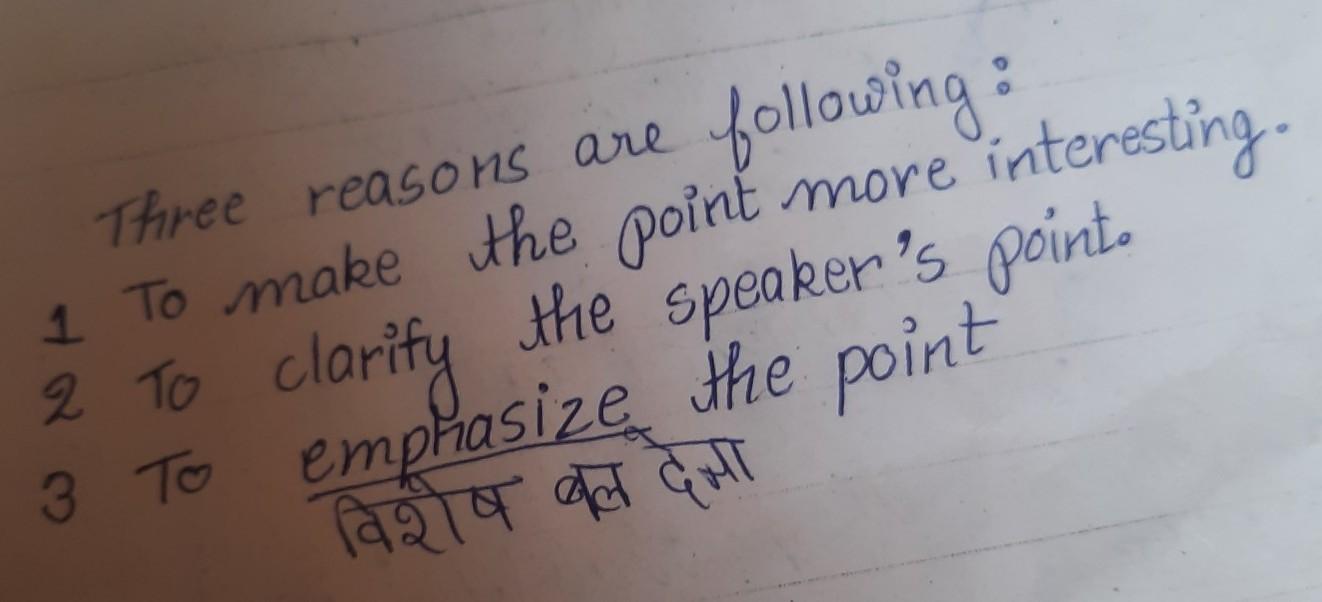 Three reasons are following:
1 To make the point more interesting.
2 To clarify the speaker's point.
3 To emphasize the point
विशेष बल देना